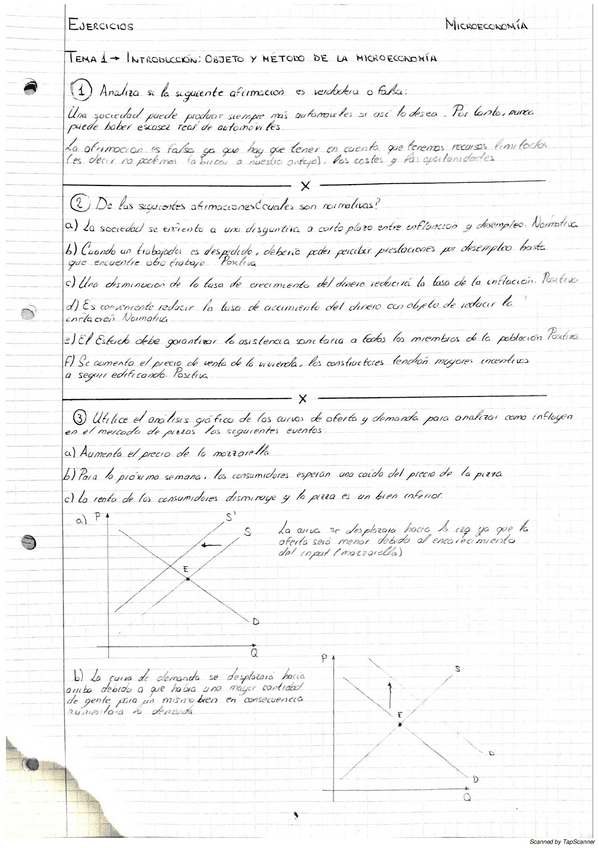 EJERCICIOS
MICROECONOMÍA
TEMA 1 → INTRODUCCIÓN: OBJETO Y MÉTODO DE LA MICROECONOMÍA
① Analiza si la siguiente afirmación es verdadera o falsa:
Una sociedad puede producir siempre más automóviles si así lo desea. Por tanto, nunca
puede haber escasez real de automóviles.
La afirmación es falsa ya que hay que tener en cuenta que tenemos recursos limitados
(es decir no podemos fabricar a nuestro antojo), los costes y las oportunidades
x
② De las siguientes afirmaciones ¿cuales son normativas?
a) La sociedad se enfrenta a una disyuntiva a corto plazo entre inflancion y desempleo. Normativa
b) Cuando un trabajador es despedido, debería poder percibir prestaciones por desempleo hasta
que encuentre otro trabajo. Positiva
c) Una disminución de la tasa de crecimiento del dinero reducirá la tasa de la inflación. Positiva
d) Es conveniente reducir la tasa de crecimiento del dinero con objeto de reducir la
inflación Normativa
e) El Estado debe garantizar la asistencia sanitaria a todos los miembros de la población Positiva
f) Si aumenta el precio de venta de la vivienda, los constructores tendrán mayores incentivos
a seguir edificando. Positiva
x
③ Utilice el análisis gráfico de las curvas de oferta y demanda para analizar como influyen
en el mercado de pizzas los siguientes eventos:
a) Aumenta el precio de la mozzarella
b) Para la próxima semana, los consumidores esperan una caída del precio de la pizza
c) La renta de los consumidores disminuye y la pizza es un bien inferior.
a) P
S'
S
E
D
Q
La curva se desplazara hacia la izq ya que la
oferta será menor debido al encarecimiento
del input (mozzarella)
b) La curva de demanda se desplazará hacia
arriba debido a que habrá una mayor cantidad
de gente para un mismo bien en consecuencia
aumentara la demanda
P
S
E
D
D
Q
Scanned by TapScanner